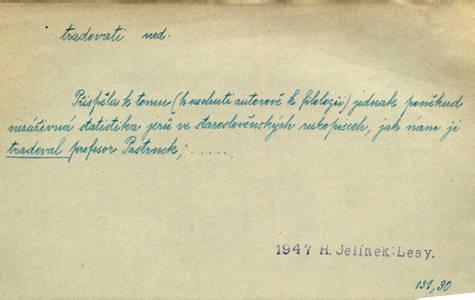 tradovati ned.
Přispěla k tomu (k nechuti autorově k filologii) jednak poněkud
nezáživná statistika jerů ve staroslověnských rukopisech, jak nám ji
tradoval profesor Pastrnek, .....
1947 H. Jelínek: Lesy.
131,30